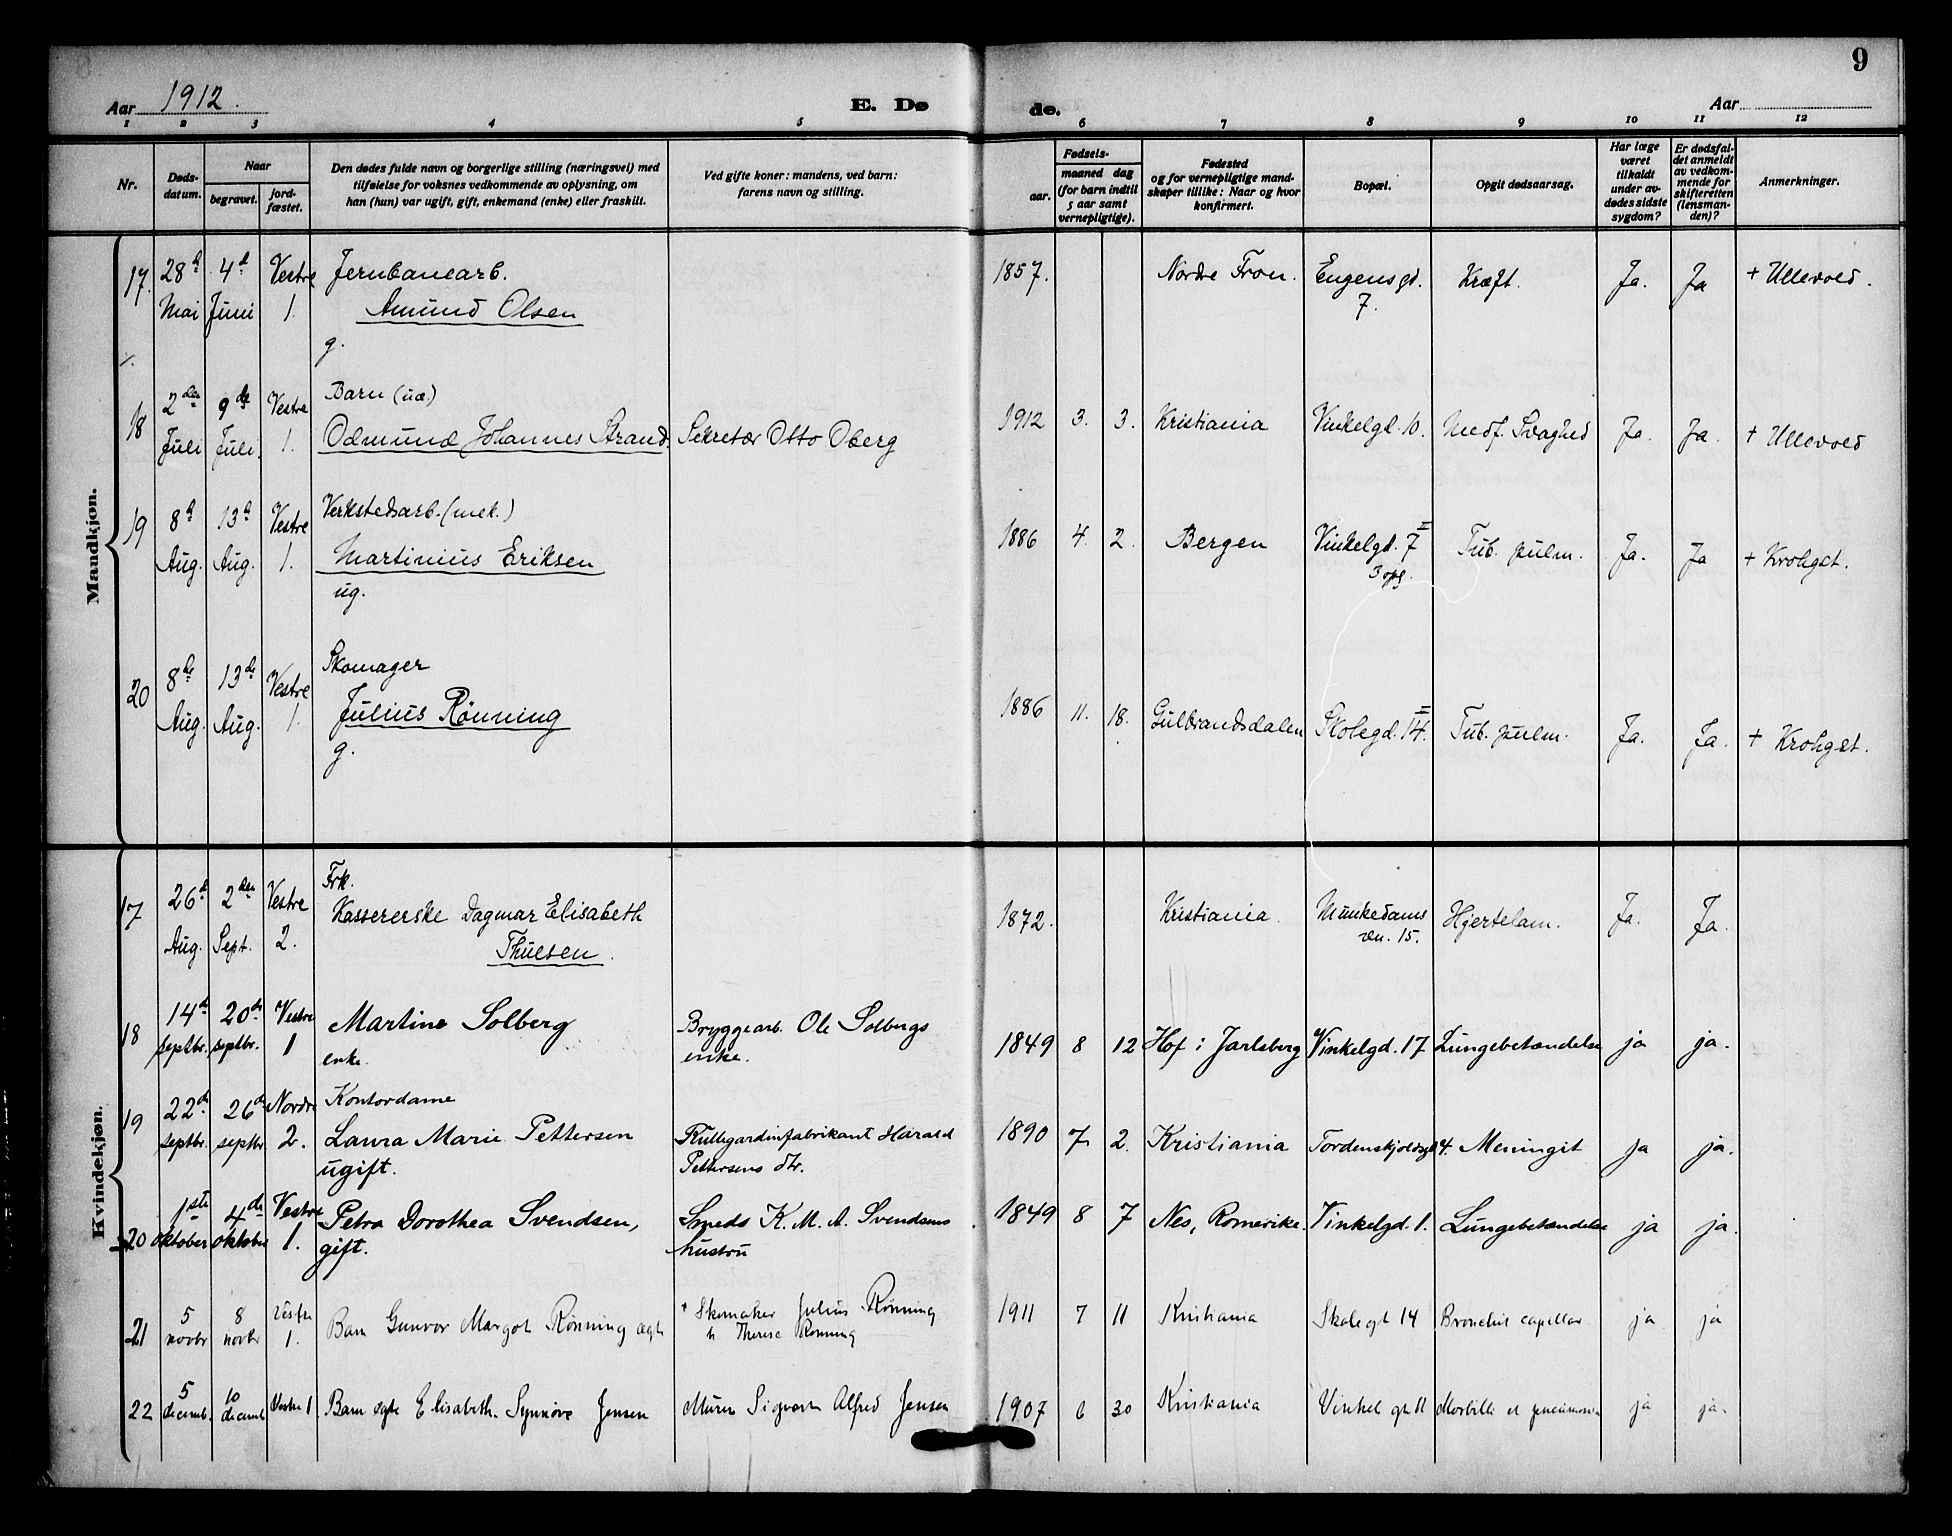 9
Aar 1912.
E. Dø
de.
Aar
1 2 3 4 5 6 7 8 9 10 11 12
Nr.
Døds-
datum.
Naar
begravet.
jord-
fæstet.
Den dødes fulde navn og borgerlige stilling (næringsvei) med
tilføielse for voksnes vedkommende av oplysning, om
han (hun) var ugift, gift, enkemand (enke) eller fraskilt.
Ved gifte koner: mandens, ved barn:
farens navn og stilling.
Fødsels-
aar.
maaned dag
(for barn indtil
5 aar samt
vernepligtige).
Fødested
og for vernepligtige mand-
skaper tillike: Naar og hvor
konfirmert.
Bopæl.
Opgit dødsaarsag.
Har læge
været
tilkaldt
under av-
dødes sidste
sygdom?
Er dødsfal-
det anmeldt
av vedkom-
mende for
skifteretten
(lensman-
den)?
Anmerkninger.
Mandkjøn.
17. 28d 4d Vestre Jernbanearb. 1857. Nordre Fron. Eugensgd. Kræft. Ja. Ja + Ullevold.
Mai Juni 1. Amund Olsen 7.
g.
18 2den 9de Vestre Barn (uæ.) 1912 3. 3. Kristiania Vinkelgd. 10. Medf. Svaghed Ja. Ja. + Ullevold
Juli Juli. 1. Odmund Johannes Strand. Sekretær Otto Oberg
19 8d 13d Vestre Verkstedsarb. (mek.) 1886 4. 2. Bergen Vinkelgd. 7 II Tub. pulm. Ja. Ja + Krohgst.
Aug. Aug. 1. Martinius Eriksen 3 opg.
ug.
20 8de 13de Vestre Skomager 1886 11. 18. Gulbrandsdalen Skolegd. 14. II Tub. pulm. Ja. Ja. + Krohgst.
Aug. Aug. 1. Julius Rønning
g.
Kvindekjøn.
17 26d 2den Vestre Frk. 1872. Kristiania. Munkedams Hjertelam. Ja. Ja.
Aug. Sept. 2. Kassererske Dagmar Elisabeth vn. 15.
Thuesen.
18 14de 20de Vestre Martine Solberg Bryggearb. Ole Solbergs 1849 8 12 Hof i Jarlsberg Vinkelgd. 17 Lungebetændelse ja ja.
septbr. septbr. 1 enke. enke.
19 22d 26d Nordre Kontordame 1890 7 2. Kristiania Tordenskjoldsgd 4. Meningit ja ja.
septbr. septbr 2. Laura Marie Pettersen Rullegardinfabrikant Harald
ugift. Pettersens dtr.
20 1ste 4de Vestre Petra Dorothea Svendsen, Smeds K. M. A. Svendsens 1849 8 7 Nes, Romerike. Vinkelgd. 1. Lungebetændelse ja ja.
oktober oktober 1. gift. hustru
21 5 8 Vestre Barn Gunvor Margot Rønning ægte + Skomaker Julius Rønning 1911 7 11 Kristiania Skolegt 14 Bronchit capillar ja ja
novbr novbr 1. h Therese Rønning
22 5 10 Vestre 1. Barn ægte Elisabeth Synnöve Jensen Murer Sigvart Alfred Jensen 1907 6 30 Kristiania Vinkel gt 11 Morbilli et pneumonia ja ja.
decemb. decemb